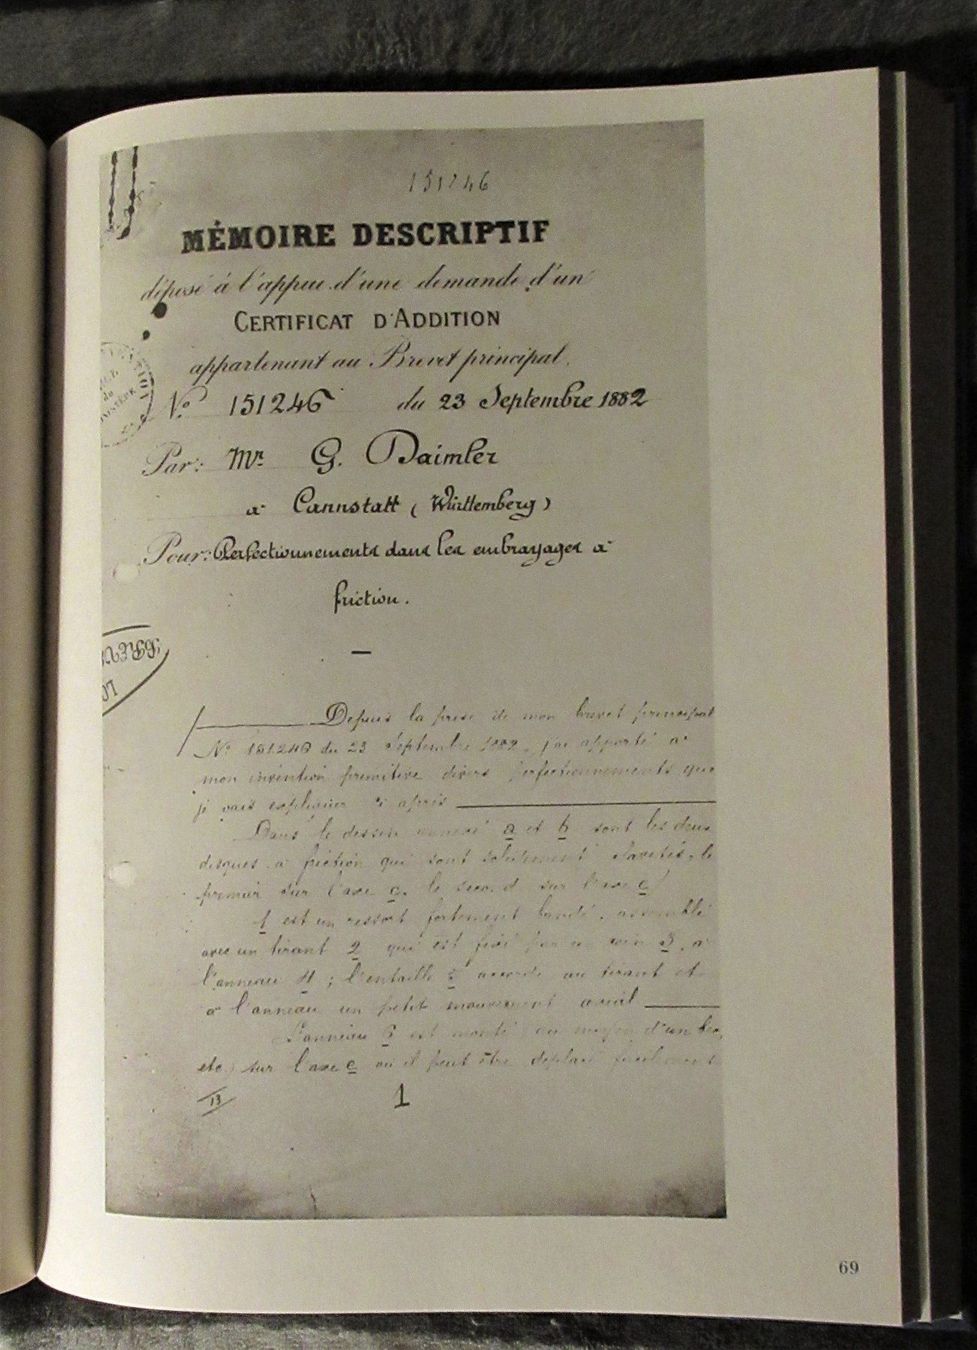 151246
MÉMOIRE DESCRIPTIF
déposé à l'appui d'une demande d'un
CERTIFICAT D'ADDITION
appartenant au Brevet principal.
No. 151246 du 23 Septembre 1882
Par: Mr. G. Daimler
à Cannstatt (Württemberg)
Pour: Perfectionnements dans les embrayages à
friction.
Depuis la prise de mon brevet principal
No. 151246 du 23 Septembre 1882, j'ai apporté à
mon invention primitive divers perfectionnements que
je vais expliquer ci après
Dans le dessin annexé a et b sont les deux
disques à friction qui sont solidement clavetés, le
premier sur l'axe c, le second sur l'axe c'
1 est un ressort fortement bandé, assemblé
avec un tirant 2 qui est fixé par un 3, à
l'anneau 4; l'entaille 5 accorde au tirant et
à l'anneau un petit mouvement axial
L'anneau 6 est monté au moyen d'un
etc, sur l'axe c où il peut être déplacé facilement
13
1
69